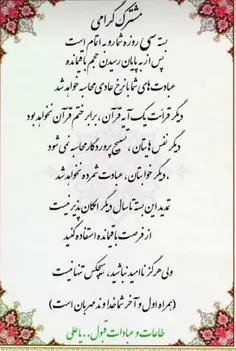 مشترک گرامی
بسته سی روزه شما رو به اتمام است
پس از به پایان رسیدن حجم باقیمانده
عبادت‌های شما با نرخ عادی محاسبه خواهد شد
دیگر قرائت یک آیه قرآن، برابر ختم قرآن نخواهد بود
دیگر نفس هایتان، تسبیح پروردگار محاسبه نمی شود
.دیگر خوابتان، عبادت شمرده نخواهد شد
تمدید این بسته تا سال دیگر امکان پذیر نیست
از فرصت باقیمانده استفاده کنید
ولی هرگز ناامید نباشید، هیچکس تنها نیست
(همراه اول و آخر شما خداوند مهربان است)
طاعات و عبادات قبول..یا علی